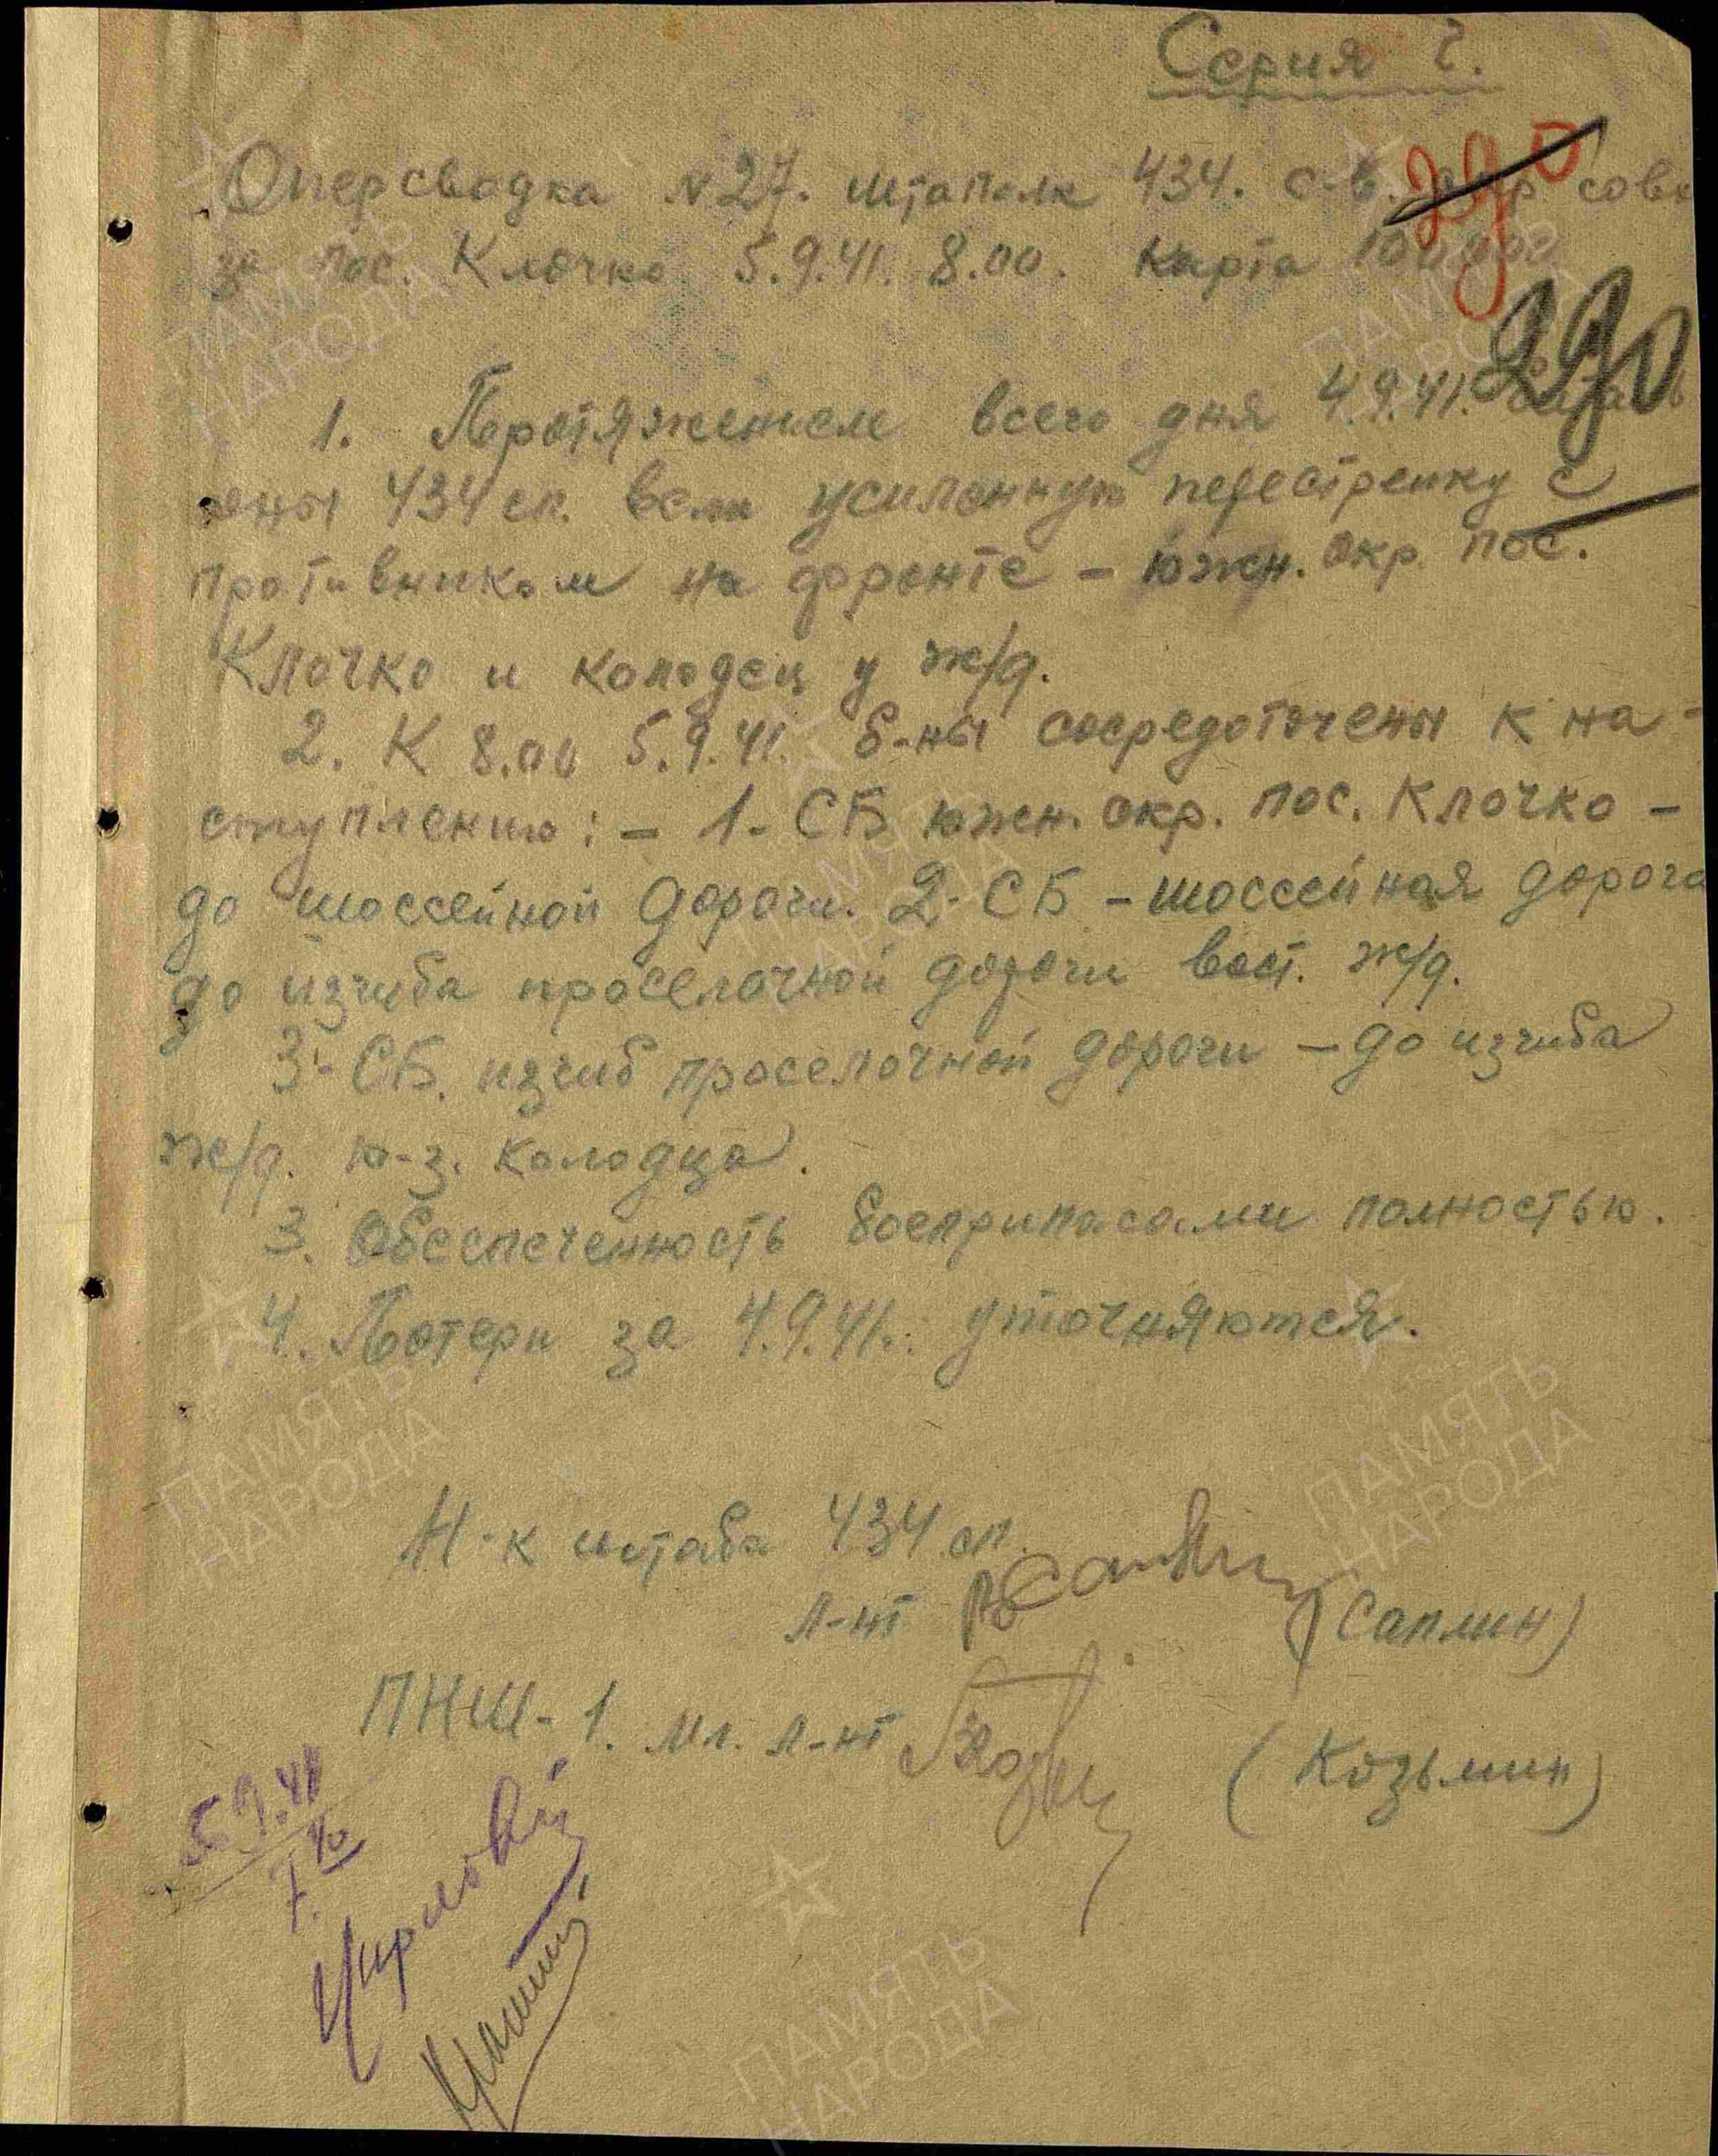 Серия Г.
Оперсводка N 27. штаполк 434. с-в. окр совх
за пос. Клочко 5.9.41. 8.00. Карта 100000
290
290
1. Протяжением всего дня 4.9.41.
оны 434 сп. вели усиленную перестрелку с
противником на фронте – южн. окр. пос.
Клочко и колодец у ж/д.
2. К 8.00 5.9.41. б-ны сосредоточены к на-
ступлению: – 1-СБ южн. окр. пос. Клочко –
до шоссейной дороги. 2-СБ – шоссейная дорога
до изгиба проселочной дороги вост. ж/д.
3-СБ. изгиб проселочной дороги – до изгиба
ж/д. ю-з. колодца.
3. Обеспеченность боеприпасами полностью.
4. Потери за 4.9.41. уточняются.
Н-к штаба 434 сп.
л-нт (Саплин)
ПНШ-1. мл. л-нт (Козьмин)
5.9.41
7.40
ПАМЯТЬ
НАРОДА
ПАМЯТЬ
НАРОДА
ПАМЯТЬ
НАРОДА
ПАМЯТЬ
НАРОДА
ПАМЯТЬ
НАРОДА
ПАМЯТЬ
НАРОДА